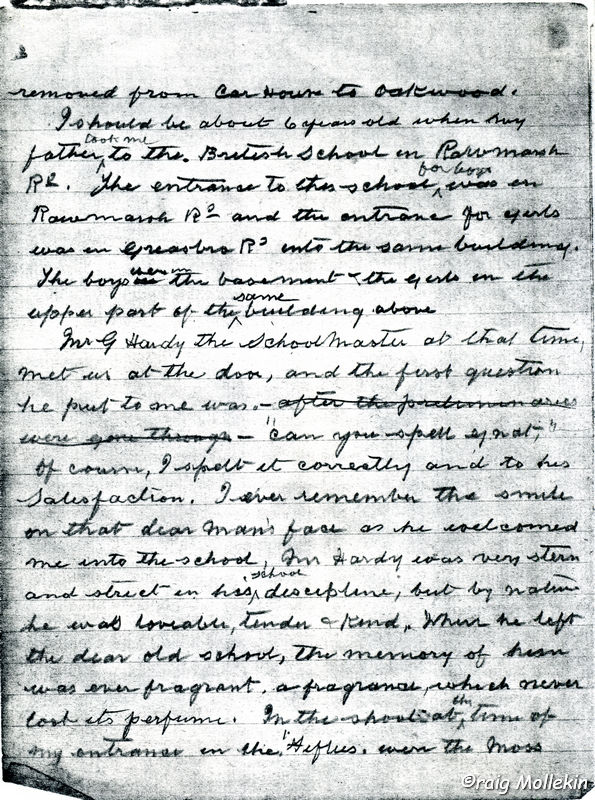 removed from Car House to Oakwood.
I should be about 6 years old when my
took me
father to the British School in Rawmarsh
for boys
Rd. The entrance to this school, was in
Rawmarsh Rd and the entrance for girls
was in Greasbro Rd into the same building.
were in
The boys the basement & the girls in the
same
upper part of the building above
Mr G Hardy the SchoolMaster at that time,
met us at the door, and the first question
he put to me was, – after the preliminaries
were gone through – "can you spell gnat,"
Of course, I spelt it correctly and to his
Satisfaction. I ever remember the smile
on that dear Man's face as he welcomed
me into the school, Mr Hardy was very stern
school
and strict in his discipline, but by nature
he was loveable, tender & kind. When he left
the dear old school, the memory of him
was ever fragrant, a fragrance, which never
the
lost its perfume. In the shool at time of
my entrance in the, were the Moss
©raig Mollekin